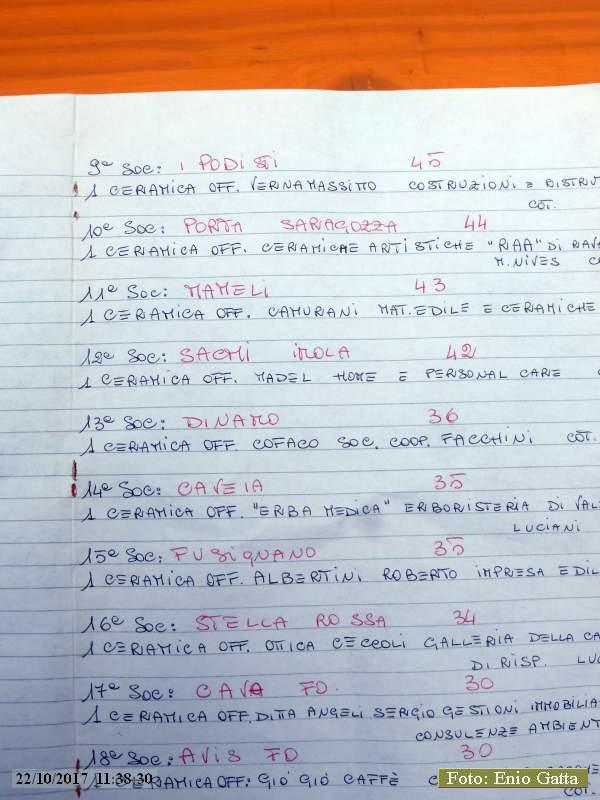 9ª Soc: I PODISTI 45
1 CERAMICA OFF. VERNA MASSIMO COSTRUZIONI E RISTRU
COT.
10ª Soc: PORTA SARAGOZZA 44
1 CERAMICA OFF. CERAMICHE ARTISTICHE "RIAA" DI RAV
M. NIVES C
11ª Soc: MAMELI 43
1 CERAMICA OFF. CAMURANI MAT. EDILE E CERAMICHE
12ª Soc: SACMI IMOLA 42
1 CERAMICA OFF. MADEL HOME E PERSONAL CARE
13ª Soc: DINAMO 36
1 CERAMICA OFF. COFACO SOC. COOP. FACCHINI COT.
14ª Soc: CAVEJA 35
1 CERAMICA OFF. "ERBA MEDICA" ERBORISTERIA DI VAL
LUCIANI
15ª Soc: FUSIGNANO 35
1 CERAMICA OFF. ALBERTINI ROBERTO IMPRESA EDIL
16ª Soc: STELLA ROSSA 34
1 CERAMICA OFF. OTTICA CECCOLI GALLERIA DELLA CA
DI RISP. LUG
17ª Soc: CAVA FO. 30
1 CERAMICA OFF. DITTA ANGELI SERGIO GESTIONI IMMOBILIA
CONSULENZE AMBIENT
18ª Soc: AVIS FO 30
1 CERAMICA OFF. GIÒ GIÒ CAFFÈ
COT.
22/10/2017 11:38:30
Foto: Enio Gatta